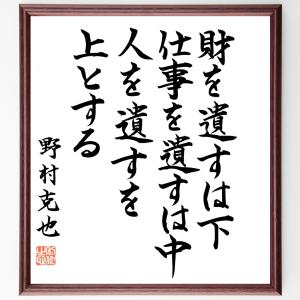 財を遺すは下
仕事を遺すは中
人を遺すを
上とする
野村克也